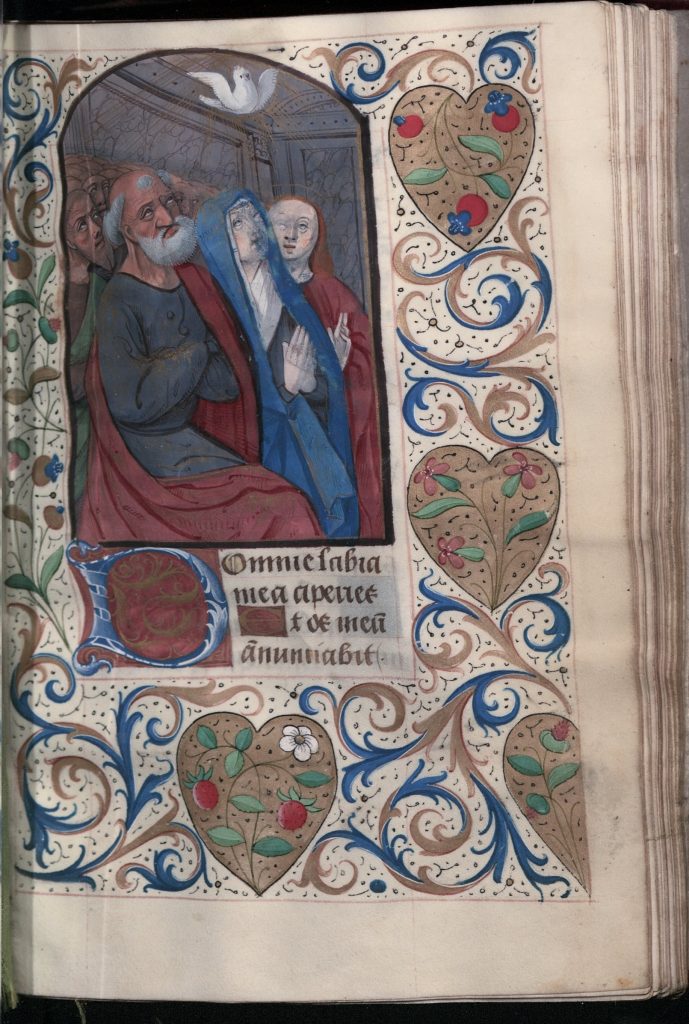 Domine labia
mea aperies
Et os meū
ānunciabit